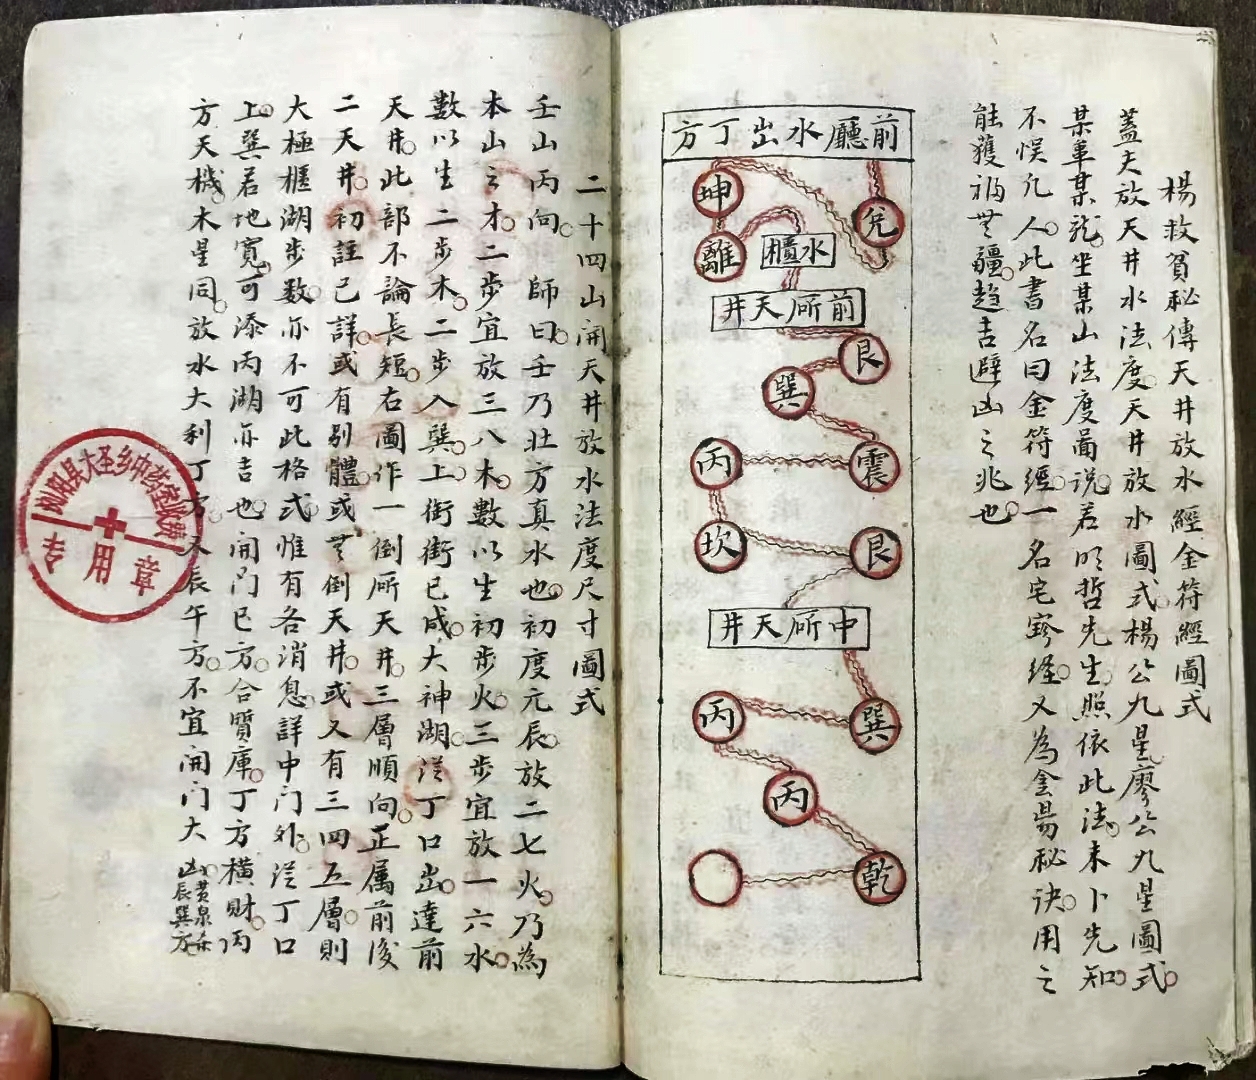 楊救貧秘傳天井放水經金符經圖式
蓋夫放天井水法度天井放水圖式楊公九星廖公九星圖式
某峯某龍坐某山法度圖說若明哲先生照依此法未卜先知
不悮凡人此書名曰金符經一名宅寶經又為金湯秘訣用之
能獲福無疆趋吉避凶之兆也
前廳水出丁方
兌
坤
離
水櫃
前所天井
艮
巽
震
丙
坎
艮
中所天井
巽
丙
丙
乾
二十四山開天井放水法度尺寸圖式
壬山丙向 師曰壬乃壯方真水也初度元辰放二七火乃為
本山之才二步宜放三八木數以生初步火三步宜放一六水
數以生二步木二步入巽上街街已成大神湖從丁口出達前
天井此部不論長短右圖作一倒所天井三層順向正屬前後
二天井初註已詳或有别體或無倒天井或又有三四五層則
大極櫃湖步数亦不可此格式惟有各消息詳中门外從丁口
上巽若地寬可添丙湖亦吉也開门巳方合質庫丁方横財丙
方天機木星同放水大利丁方 辰午方不宜開门大凶
黄泉
辰巽方
浏阳县大圣乡
专用章